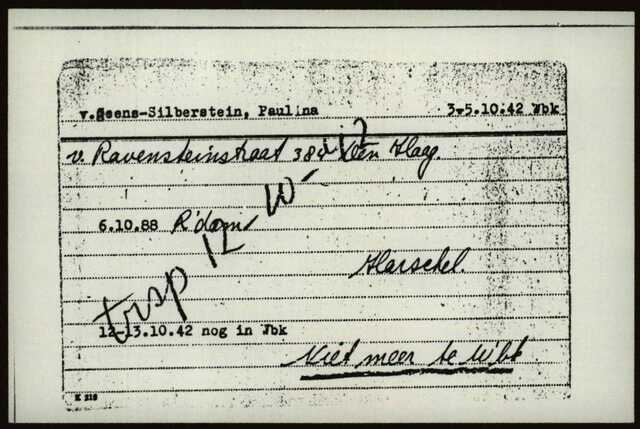 v.Geens-Silberstein, Paulina 3-5.10.42 Wbk
v. Ravensteinstraat 38d Den Haag.
6.10.88 R'dam
Herschel.
trsp 12-10-
12-13.10.42 nog in Wbk
Niet meer te Wbk
K 218